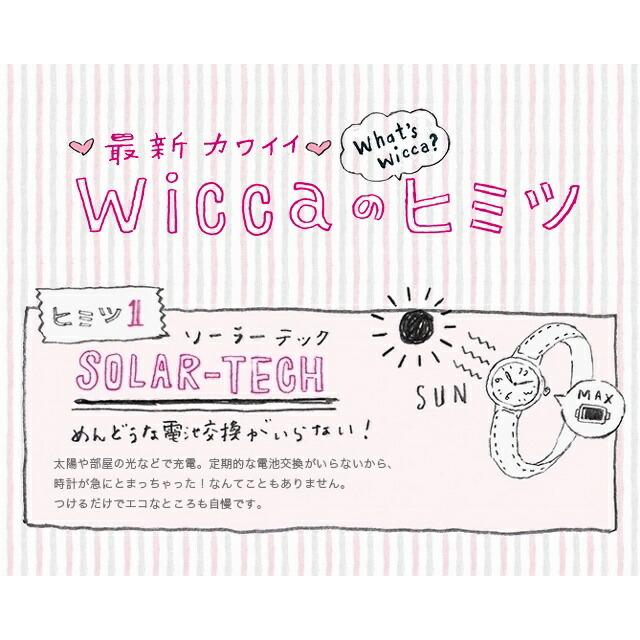 最新カワイイ
What's
Wicca?
Wiccaのヒミツ
ヒミツ1
ソーラーテック
SOLAR-TECH
SUN
MAX
めんどうな電池交換がいらない!
太陽や部屋の光などで充電。定期的な電池交換がいらないから、
時計が急にとまっちゃった!なんてこともありません。
つけるだけでエコなところも自慢です。